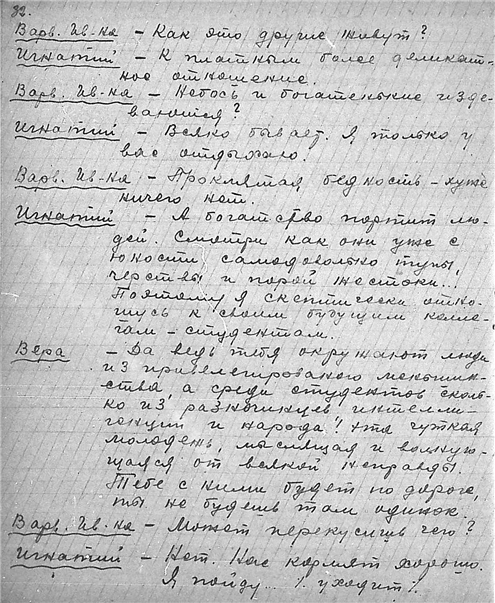 32.
Варв. Ив-на – Как это другие живут?
Игнатий – К платным более деликат-
ное отношение.
Варв. Ив-на – Небось и богатенькие изде-
ваются?
Игнатий – Всяко бывает. Я только у
вас отдыхаю.
Варв. Ив-на – Проклятая бедность – хуже
ничего нет.
Игнатий – А богатство портит лю-
дей. Смотри как они уже с
юности самодовольно тупы,
черствы и порой жестоки...
Поэтому я скептически отно-
шусь к своим будущим колле-
гам – студентам.
Вера – Да ведь тебя окружают люди
из привелегированого меньшин-
ства, а среди студентов сколь-
ко из разночинцев, интелли-
генции и народа! Эта чуткая
молодежь мыслящая и волную-
щаяся от всякой неправды.
Тебе с ними будет по дороге,
ты не будешь там одинок.
Варв. Ив-на – Может перекусишь чего?
Игнатий – Нет. Нас кормят хорошо.
Я пойду... /. уходит /.